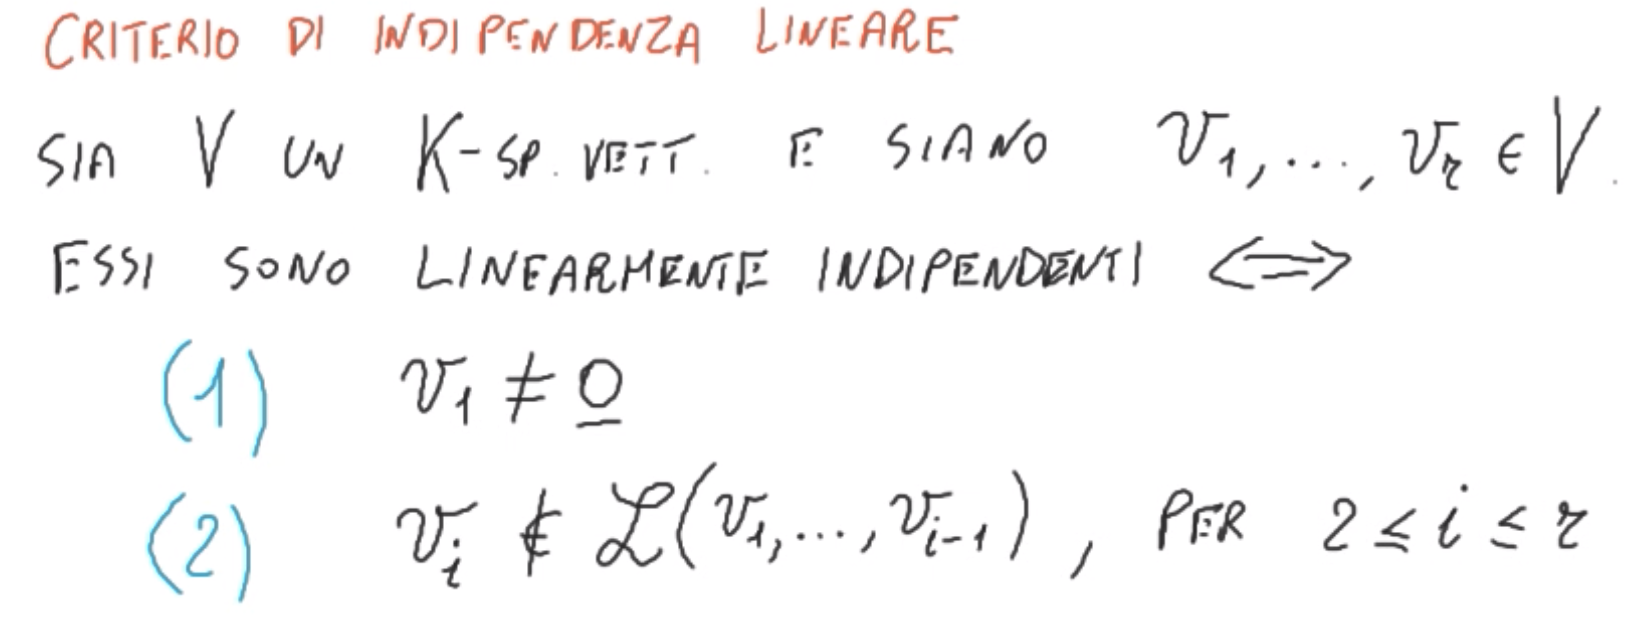 CRITERIO DI INDIPENDENZA LINEARE
SIA V UN K-SP. VETT. E SIANO v₁, ..., vᵣ ∈ V.
ESSI SONO LINEARMENTE INDIPENDENTI ⟺
(1) v₁ ≠ 0̲
(2) vᵢ ∉ ℒ(v₁, ..., vᵢ₋₁), PER 2 ≤ i ≤ r